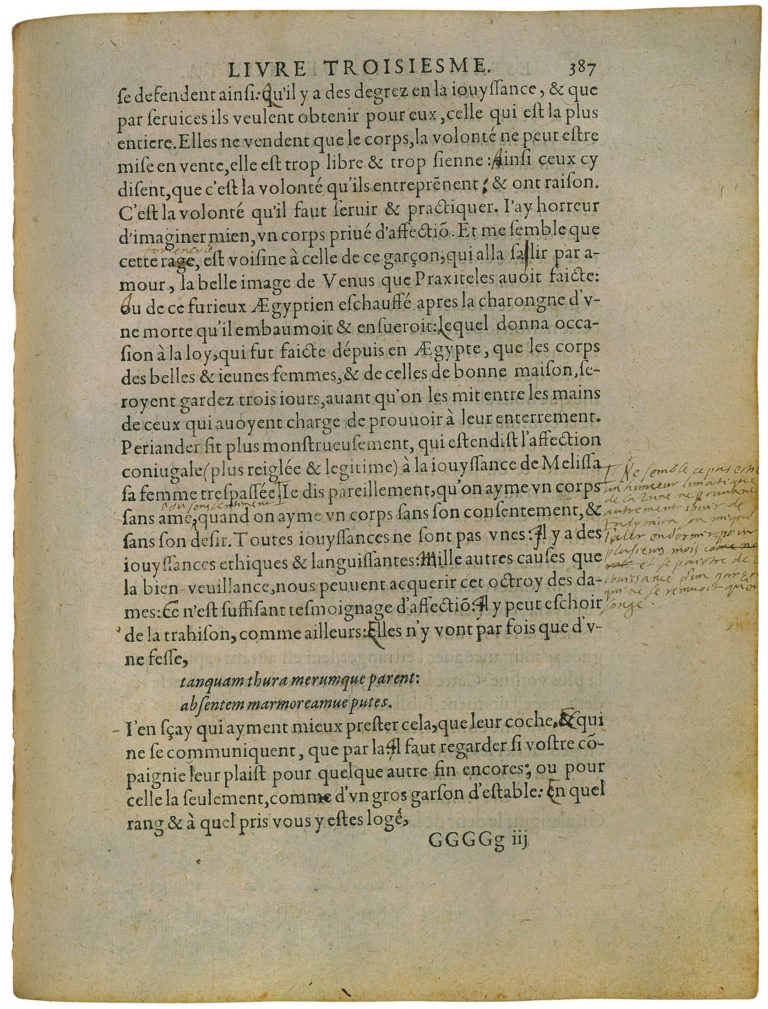 LIVRE TROISIESME. 387
ſe defendent ainſi: Qu'il y a des degrez en la iouyſſance, & que
par ſeruices ils veulent obtenir pour eux, celle qui eſt la plus
entiere. Elles ne vendent que le corps, la volonté ne peut eſtre
miſe en vente, elle eſt trop libre & trop ſienne: Ainſi ceux cy
diſent, que c'eſt la volonté qu'ils entreprēnent; & ont raiſon.
C'eſt la volonté qu'il faut ſeruir & practiquer. I'ay horreur
d'imaginer mien, vn corps priué d'affectiō. Et me ſemble que
cette rage, eſt voiſine à celle de ce garçon, qui alla ſallir par a-
mour, la belle image de Venus que Praxiteles auoit faicte:
Ou de ce furieux Ægyptien eſchauffé apres la charongne d'v-
ne morte qu'il embaumoit & enſueroit: Lequel donna occa-
ſion à la loy, qui fut faicte dépuis en Ægypte, que les corps
des belles & ieunes femmes, & de celles de bonne maiſon, ſe-
royent gardez trois iours, auant qu'on les mit entre les mains
de ceux qui auoyent charge de prouuoir à leur enterrement.
Periander fit plus monſtrueuſement, qui eſtendiſt l'affection
coniugale (plus reiglée & legitime) à la iouyſſance de Meliſſa
ſa femme treſpaſſée. Ie dis pareillement, qu'on ayme vn corps
ou sans sentiment
ſans ame, quand on ayme vn corps ſans ſon conſentement, &
ſans ſon deſir. Toutes iouyſſances ne ſont pas vnes: Il y a des
iouyſſances ethiques & languiſſantes: Mille autres cauſes que
la bien-veuillance, nous peuuent acquerir cet octroy des da-
mes: Ce n'eſt ſuffiſant teſmoignage d'affectiō: Il y peut eſchoir
de la trahiſon, comme ailleurs: Elles n'y vont par fois que d'v-
ne feſſe,
tanquam thura merumque parent:
abſentem marmoreamue putes.
I'en ſçay qui ayment mieux preſter cela, que leur coche, & qui
ne ſe communiquent, que par la: Il faut regarder ſi voſtre cō-
paignie leur plaiſt pour quelque autre fin encores; ou pour
celle la ſeulement, comme d'vn gros garſon d'eſtable: En quel
rang & à quel pris vous y eſtes logé,
GGGGg iij
Ne semble ce pas estre
un'humeur lunatique
de la lune ne pouvant
autrement iouir de
Endymion son mignon
l'aller endormir pour
plusieurs mois
et se paistre de la
iouissance d'un garçon
qui ne se remuoit qu'en
songe.